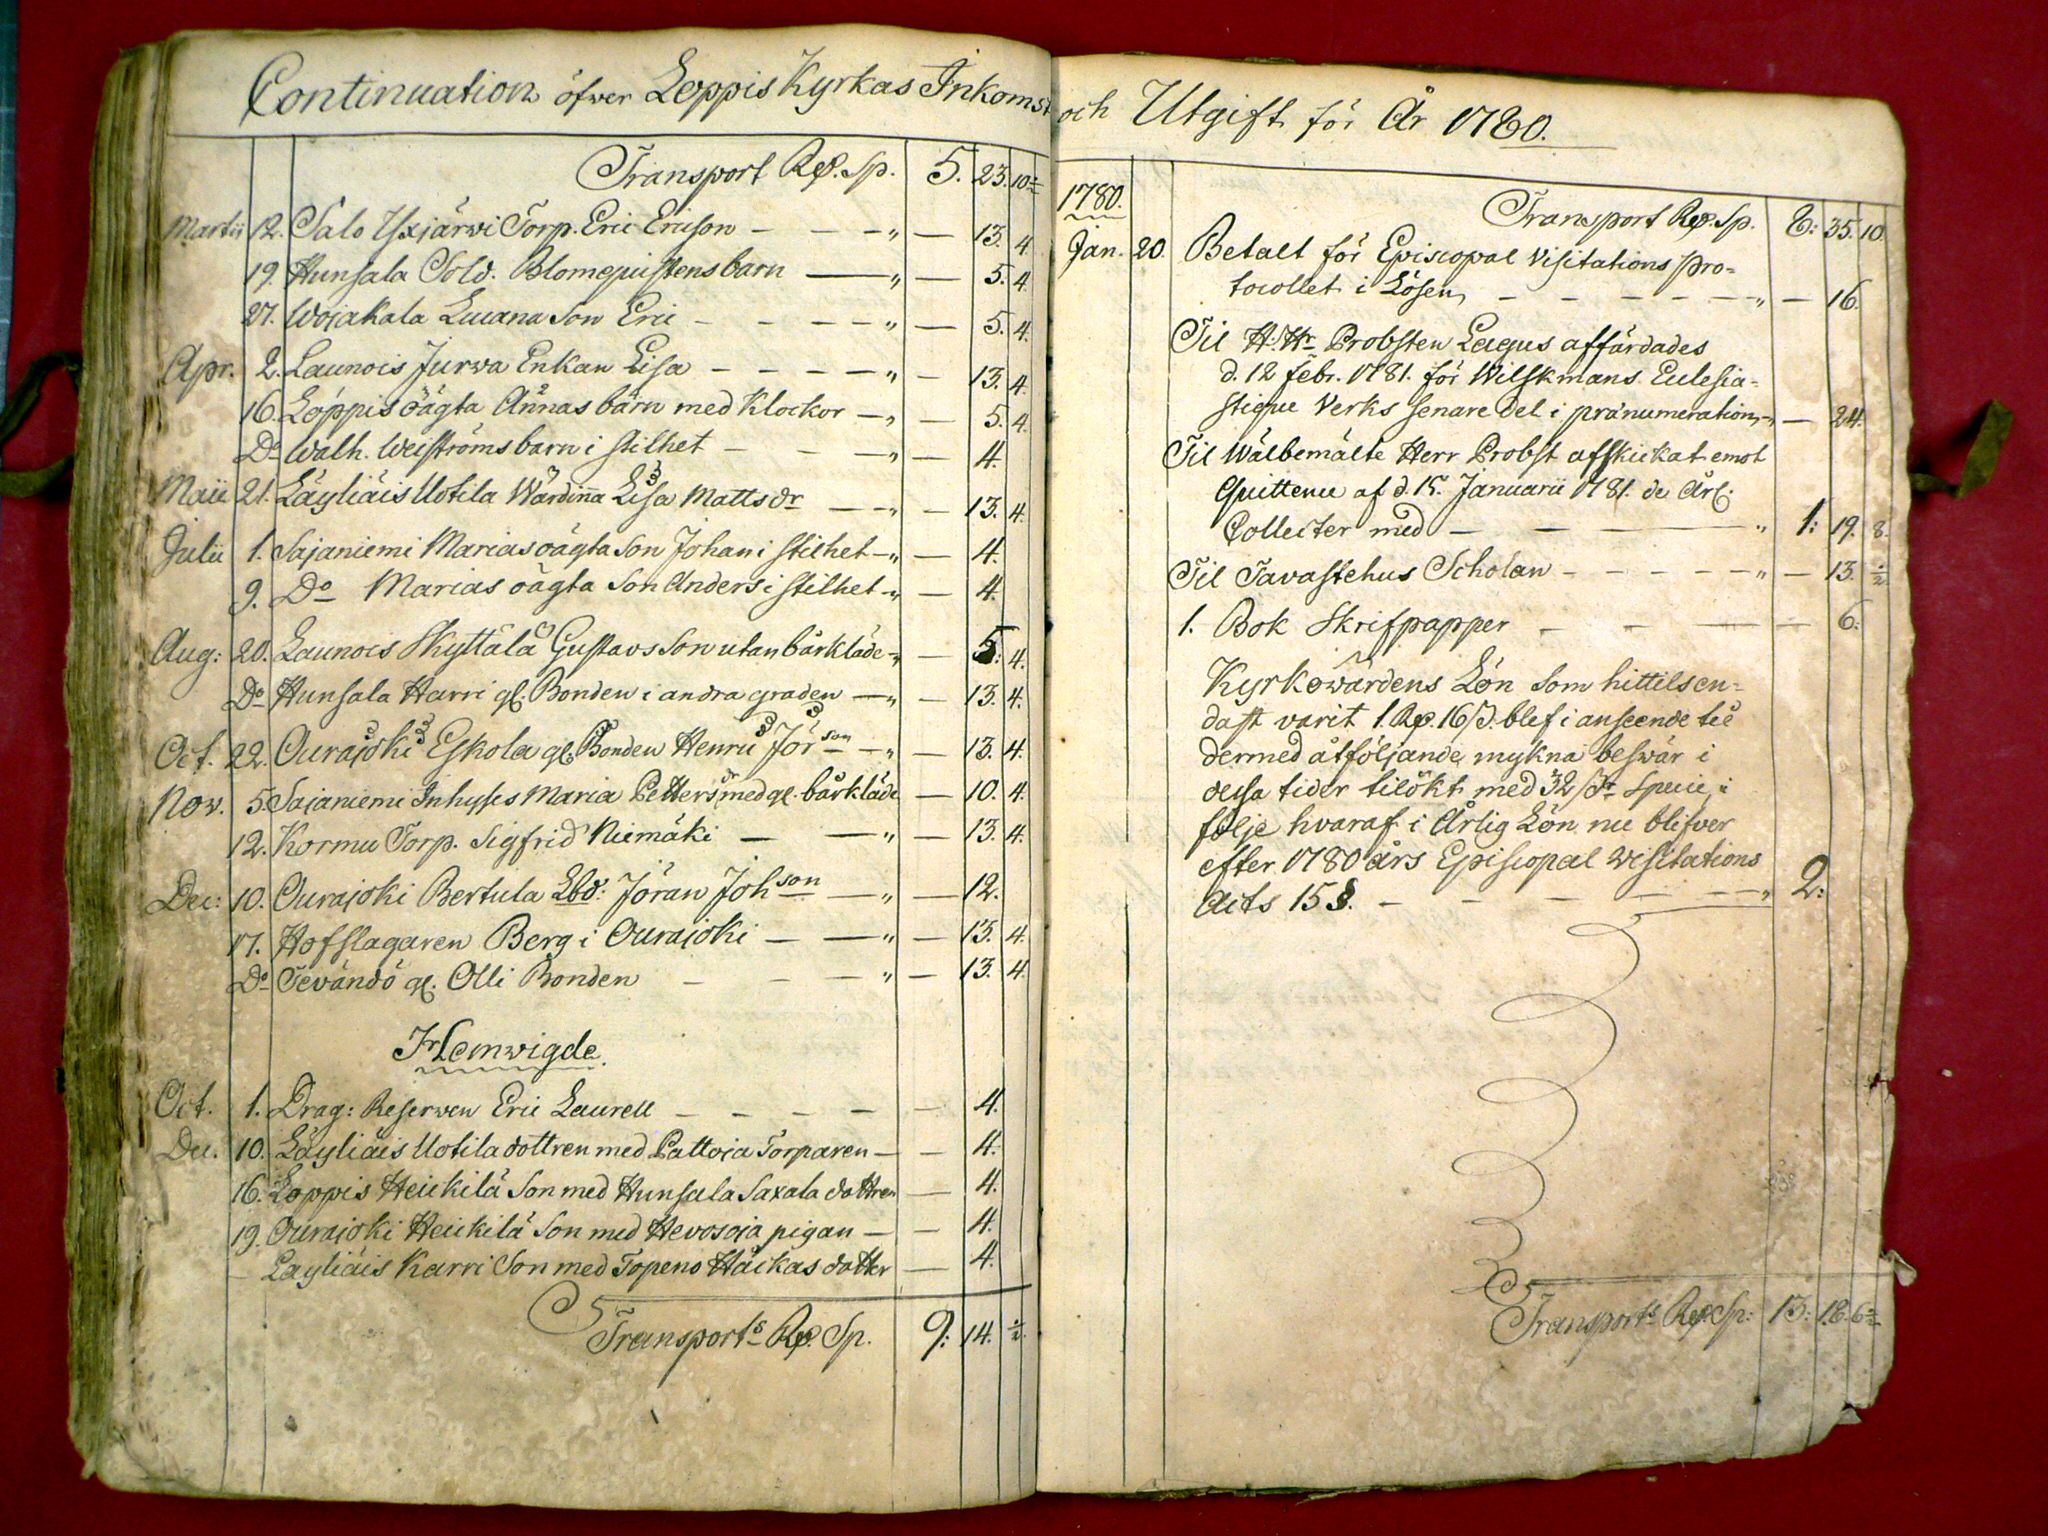 Continuation öfwer Loppis Kyrkas Inkomst
Transport Rp. Sp. 5. 23. 10 ½
Martii 12. Salo Yxjärwi Torp. Eric Ericson — — — " — 13. 4.
19. Hunsala Sold. Blomqvistens barn — " — 5. 4.
27. Wojakala Lucana Son Eric — — — — " — 5. 4.
Apr. 2. Launois Jurwa Enkan Lisa — — — — " — 13. 4.
16. Loppis oägta Annas barn med Klockor — " — 5. 4.
Do Walh. Weiströms barn i stilhet — — — " — 4.
Maii 21. Läyliäis Uotila Wärdinna Lisa Matts dr — — " — 13. 4.
Julii 1. Sajaniemi Marias oägta Son Johan i stilhet — " — 4.
9. Do Marias oägta Son Anders i stilhet — " — 4.
Aug: 20. Launois Skyttälä Gustavs Son utan bårkläde — " — 5. 4.
Do Hunsala Harri gl. Bonden i andra graden — " — 13. 4.
Oct. 22. Ourajoki Eskola gl. Bonden Henric Jör son — " — 13. 4.
Nov. 5. Sajaniemi Inhyses Maria Petters dr med gl. bårkläde — 10. 4.
12. Kormu Torp. Sigfrid Niemäki — — " — 13. 4.
Dec: 10. Ourajoki Bertula Lbd: Jöran Joh son — — " — 12.
17. Hofslagaren Berg i Ourajoki — — " — 13. 4.
Do Tevändö gl. Olli Bonden — — — " — 13. 4.
Hemwigde.
Oct. 1. Drag: Reserven Eric Laurell — — — — — 4.
Dec. 10. Läyliäis Uotila dottren med Pattoja Torparen — — 4.
16. Loppis Heickilä Son med Hunsala Saxala dottren — 4.
19. Ourajoki Heickilä Son med Hevosoja pigan — — 4.
— Layliäis Karri Son med Topeno Häickas dotter — 4.
Transports Rp. Sp. 9: 14. ½.
och Utgift för År 1780.
1780. Transport Rp. Sp. 8: 35. 10.
Jan. 20. Betalt för Episcopal Visitations Pro=
tocollet i Lösen — — — — — — " — 16.
Til H: Hr Probsten Lagus affärdades
d. 12 febr. 1781. för Wilskmans Eclesia=
stique Verks senare del i pränumeration — " — 24.
Til Wälbemälte Herr Probst afskickat emot
Quittence af d. 15. Januarii 1781. de Årl:
Collecter med — — — — " 1: 19. 8.
Til Tavastehus Scholan — — — — — " — 13. ½
1. Bok Skrifpapper — — — — 6.
Kyrkowärdens Lön som hittils en=
dast varit 1. Rp. 16 ß. blef i anseende til
dermed åtföljande mykna beswär i
dessa tider tilökt med 32 ßr Specie, i
följe hvaraf i Årlig Lön nu blifver
efter 1780 års Episcopal Visitations
Acts 15 §. — — — — — — " 2:
Transports Rp Sp: 13: 18. 6 ½